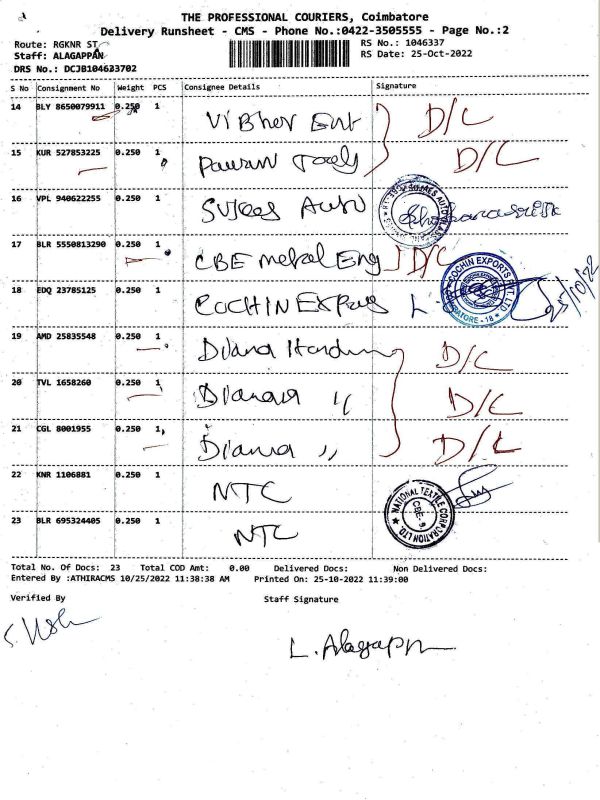 THE PROFESSIONAL COURIERS, Coimbatore
Delivery Runsheet - CMS - Phone No.:0422-3505555 - Page No.:2
Route: RGKNR ST
RS No.: 1046337
Staff: ALAGAPPAN
RS Date: 25-Oct-2022
DRS No.: DCJB104623702
S No Consignment No Weight PCS Consignee Details Signature
14 BLY 8650079911 0.250 1 Vibher Ent D/C
15 KUR 527853225 0.250 1 Pawan Tools D/C
16 VPL 940622255 0.250 1 Auto
17 BLR 5550813290 0.250 1 CBE metal Eng D/C
18 EDQ 23785125 0.250 1 COCHIN L. COCHIN EXPORTS PVT LTD COIMBATORE - 18 25/10/22
19 AMD 25835548 0.250 1 Diana D/C
20 TVL 1658260 0.250 1 Diana 〃 D/C
21 CGL 8001955 0.250 1 Diana 〃 D/C
22 KNR 1106881 0.250 1 NTC NATIONAL TEXTILE CORPORATION LTD. CBE-9
23 BLR 695324405 0.250 1 NTC
Total No. Of Docs: 23 Total COD Amt: 0.00 Delivered Docs: Non Delivered Docs:
Entered By :ATHIRACMS 10/25/2022 11:38:38 AM Printed On: 25-10-2022 11:39:00
Verified By Staff Signature
L. Alagapn